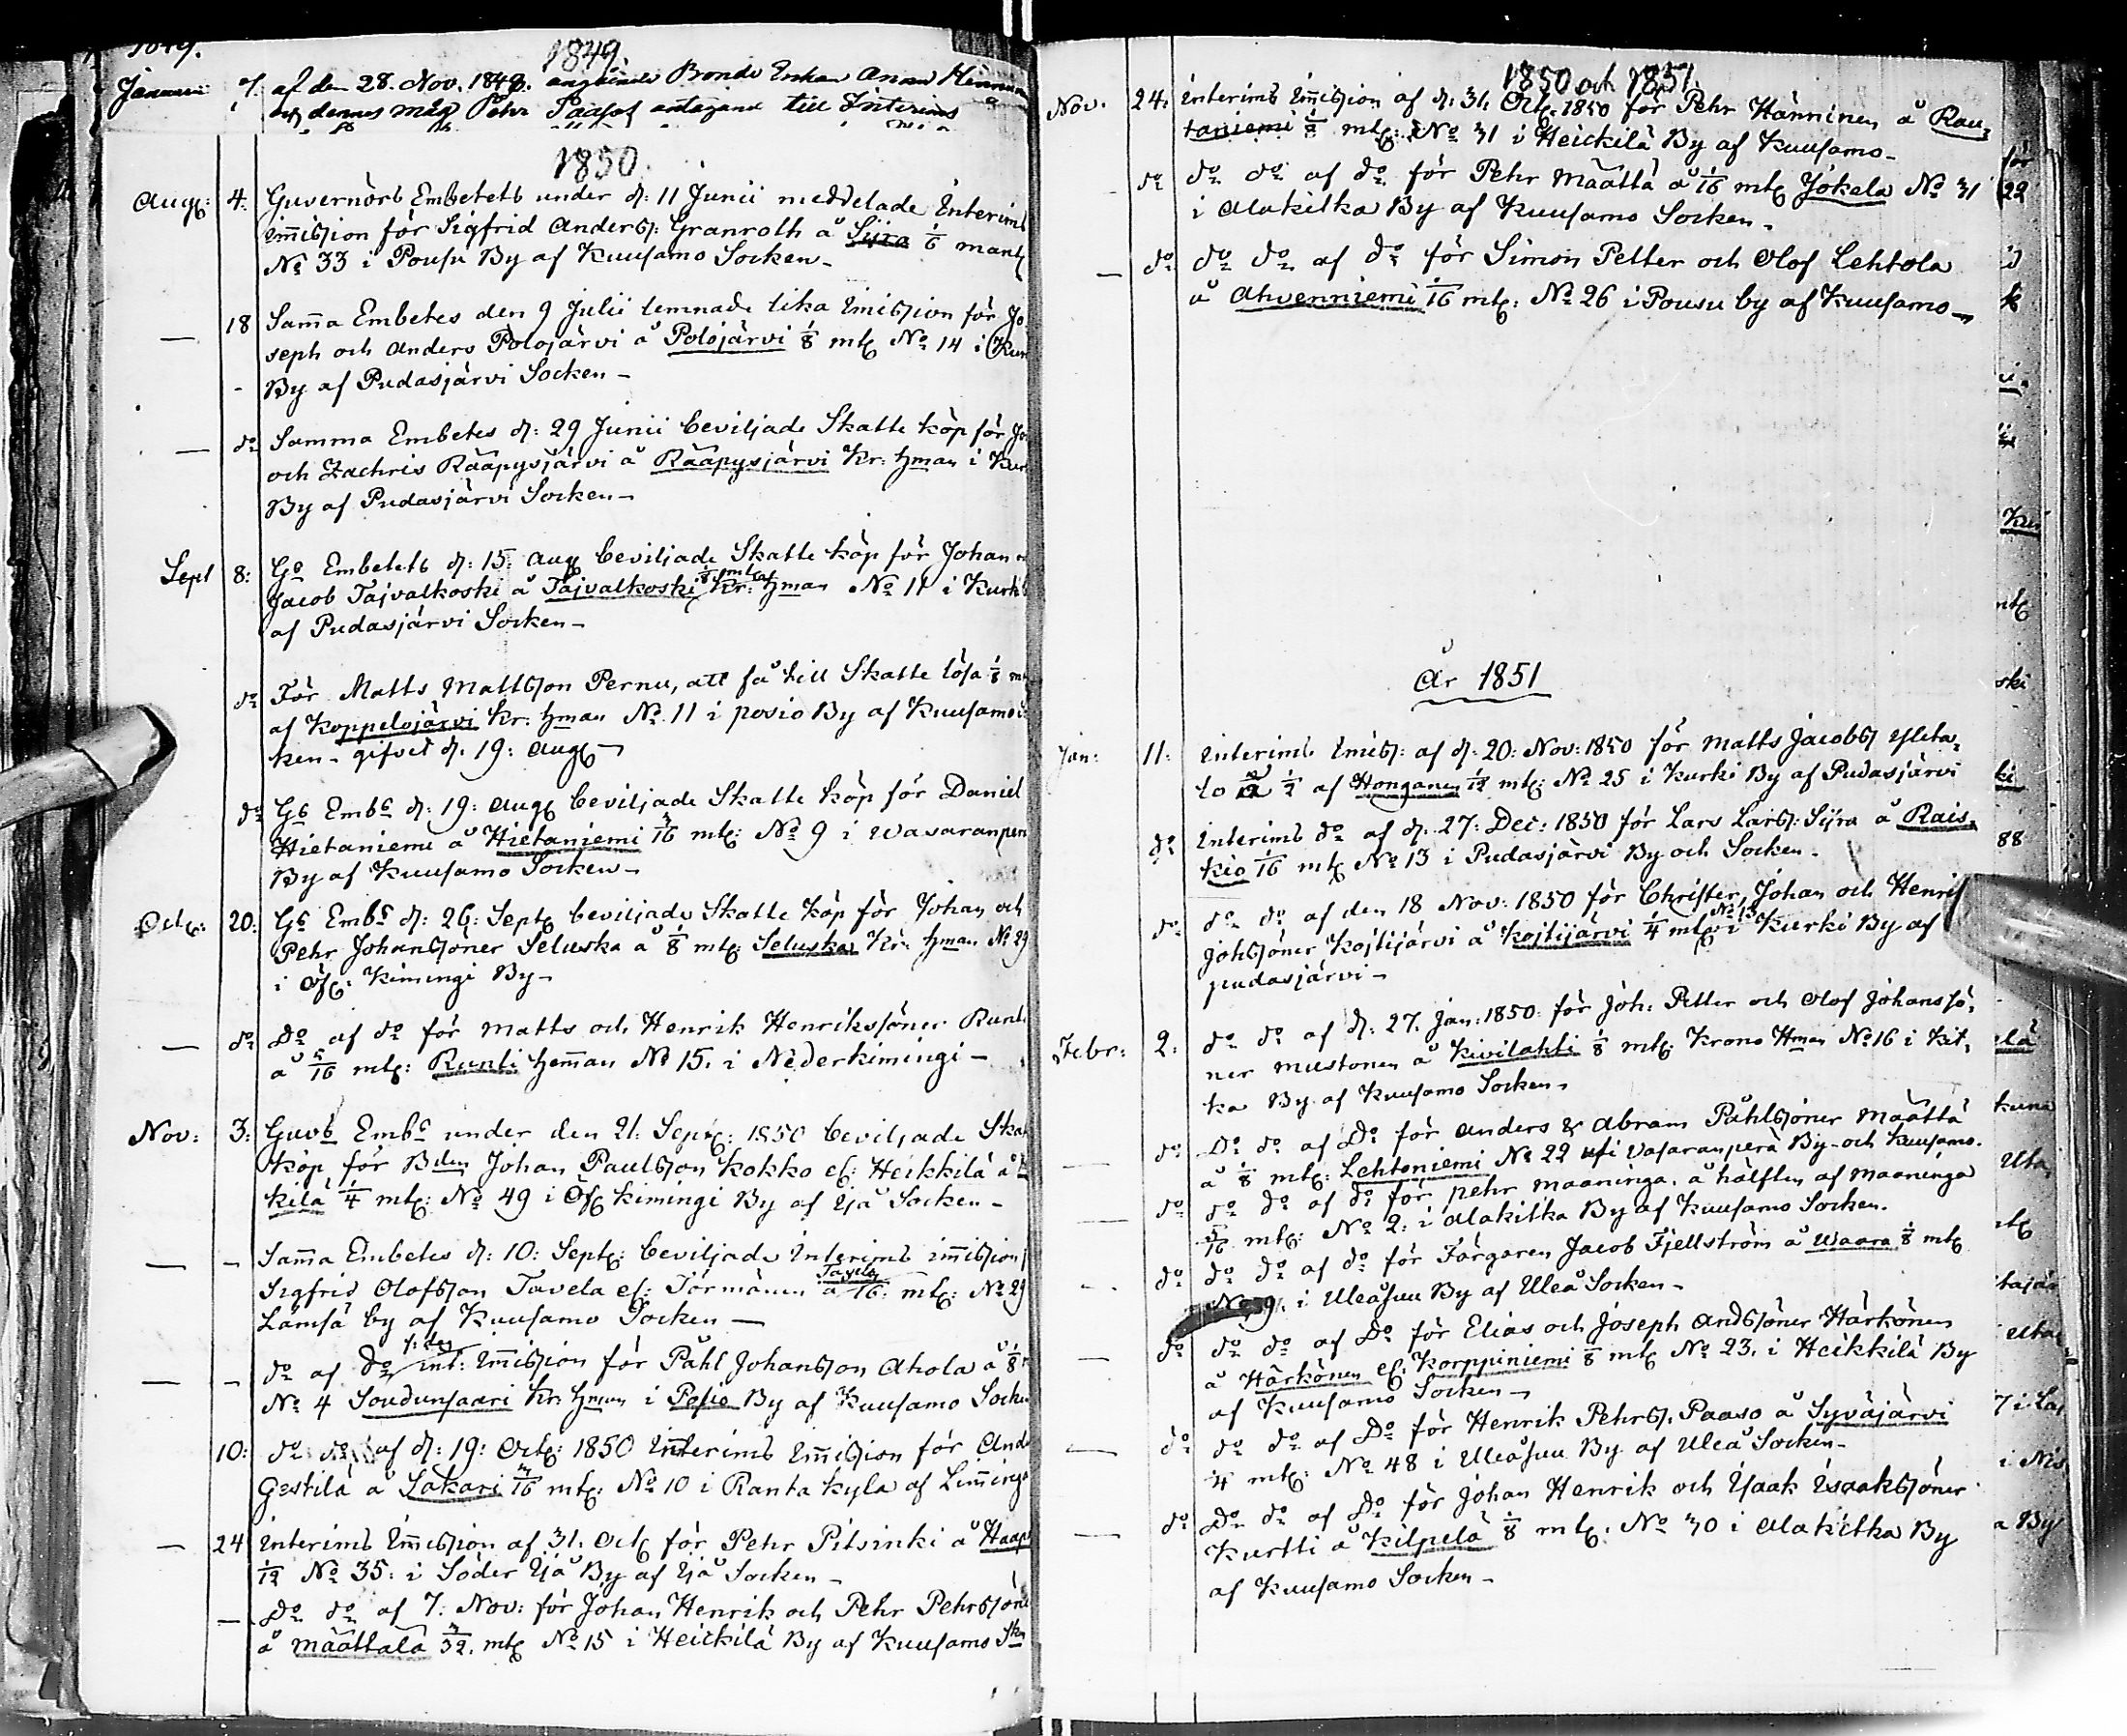 1849.
1849.
Januarii af den 28. Nov. 1848. angående Bonde Enkan Anna
och dennes måg Pehr Paaso antagand till Interims
1850.
Augt: 4: Guvernörs Embetets under d: 11 Junii meddelade Interims
immission för Sigfrid Anders: Granroth å Syra 1/6 mantl
No 33 i Pousu By af Kuusamo Socken-
— 18 Sama Embetes den 9 Julii lemnade lika Immission för Jo
seph och Anders Polojärvi å Polojärvi 1/8 mtl No 14 i Kur
By af Pudasjärvi Socken-
— do Samma Embetes d: 29 Junii beviljade Skatte köp för Jo
och Zachris Rääpysjärvi å Rääpysjärvi Kr: hman i Kur
By af Pudasjärvi Socken-
Sept 8: Go Embetets d: 15: Aug beviljade Skatte köp för Johan o
Jacob Tajvalkoski å Tajvalkoski 1/8 mtl af Kr: hman No 11 i Kurki
af Pudasjärvi Socken-
do För Matts Mattsson Pernu, att få till Skatte lösa 1/8 mt
af Koppelojärvi Kr: hman No 11 i posio By af Kuusamo
ken- gifvet d. 19: Aug-
do Gs Embe d: 19: Aug beviljade Skatte köp för Daniel
Hietaniemi å Hietaniemi 3/16 mtl: No 9 i Wasaranpera
By af Kuusamo Socken-
Octb: 20: Gs Embe d: 26: Sept beviljade Skatte köp för Johan och
Pehr Johanssöner Seluska å 1/8 mtl: Seluska Kr: hman No 29
i Öf: Kimingi By-
— do Do af do för Matts och Henrik Henrikssöner Runti
å 5/16 mtl: Runti hemman No 15. i Nederkimingi-
Nov: 3: Guvs Embe under den 21: Sept: 1850 beviljade Skat
köp för Bden Johan Paulsson Kokko el: Heikkilä å
kilä 1/4 mtl: No 49 i Öf kimingi By af Ijå Socken-
— - Sama Embetes d: 10: Sept: beviljade Interims immission
Sigfrid Olofsson Tavela el: Törmänen å Tavela 1/16 mtl: No 29
Lämsä by af Kuusamo Socken —
— - do af do s: dag int: Immission för Påhl Johansson Ahola å 1/8
No 4 Soudunsaari Kr: hman i Posio By af Kuusamo Socken
10: do do af d: 19: Octb: 1850 Interims Immission för And
Gestilä å Sakari 3/16 mtl: No 10 i Ranta kyla af Limingo
— 24 Interims Immission af 31. Oct för Pehr Pitsinki å Haap
1/12 No 35: i Söder Ijå By af Ijå Socken-
— Do do af 7: Nov: för Johan Henrik och Pehr Pehrsöner
å Määttälä 3/32. mtl No 15 i Heickilä By af Kuusamo Skn
1850 och 1851.
Nov. 24. Interims Immission af d: 31. Octb: 1850 för Pehr Hänninen å Rau=
taniemi 1/8 mtl: No 31 i Heickilä By af Kuusamo-
- do do do af do för Pehr Määttä å 1/16 mtl Jokela No 31
i Alakitka By af Kuusamo Socken.
— do do do af do för Simon Petter och Olof Lehtola
å Ahvenniemi 1/16 mtl: No 26 i Pousu by af Kuusamo-
År 1851
Jan: 11: Interims Imiss: af d: 20: Nov: 1850 för Matts Jacobs Yleta=
lo å 1/2 af Honganen 1/12 mtl: No 25 i Kurki By af Pudasjärvi
do Interims do af d: 27: Dec: 1850 för Lars Lars: Syra å Rais=
kio 1/16 mtl No 13 i Pudasjärvi By och Socken.
do do do af den 18 Nov: 1850 för Christer, Johan och Henrik
Johssöner Kojtijärvi å Kojtijärvi 1/4 mtl No 13 i Kurki By af
pudasjärvi-
Febr: 2: do do af d: 27. Jan: 1850: för Joh: Petter och Olof Johanssö=
ner Mustonen å Kivilahti 1/8 mtl: Krono Hman No 16 i Kit=
ka By af Kuusamo Socken.
— do Do do af Do för Anders & Abram Påhlssöner Määttä
å 1/8 mtl: Lehtoniemi No 22 i Vasaranperä By och Kuusamo.
— do do do af do för pehr maaninga. å hälften af Maaninga
/16 mtl: No 2: i Alakitka By af Kuusamo Socken.
- do do do af do för Färgaren Jacob Fjellström å Waara 1/8 mtl
No 9. i Uleåsuu By af Uleå Socken-
— do do do af Do för Elias och Joseph Andssöner Härkönen
å Härkönen el: Korppiniemi 1/8 mtl No 23. i Heikkilä By
af Kuusamo Socken-
— do do do af Do för Henrik Pehrs. Paaso å Syväjärvi
1/4 mtl: No 48 i Uleåsuu By af Uleå Socken-
— do Do do af Do för Johan Henrik och Isaak Isaakssöner
Kurtti å Kilpelä 1/8 mtl: No 30 i Alakitka By
af Kuusamo Socken-
för
22
k
mtl
ski
ki
88
elä
kuna
7 i La
i Nis
a By